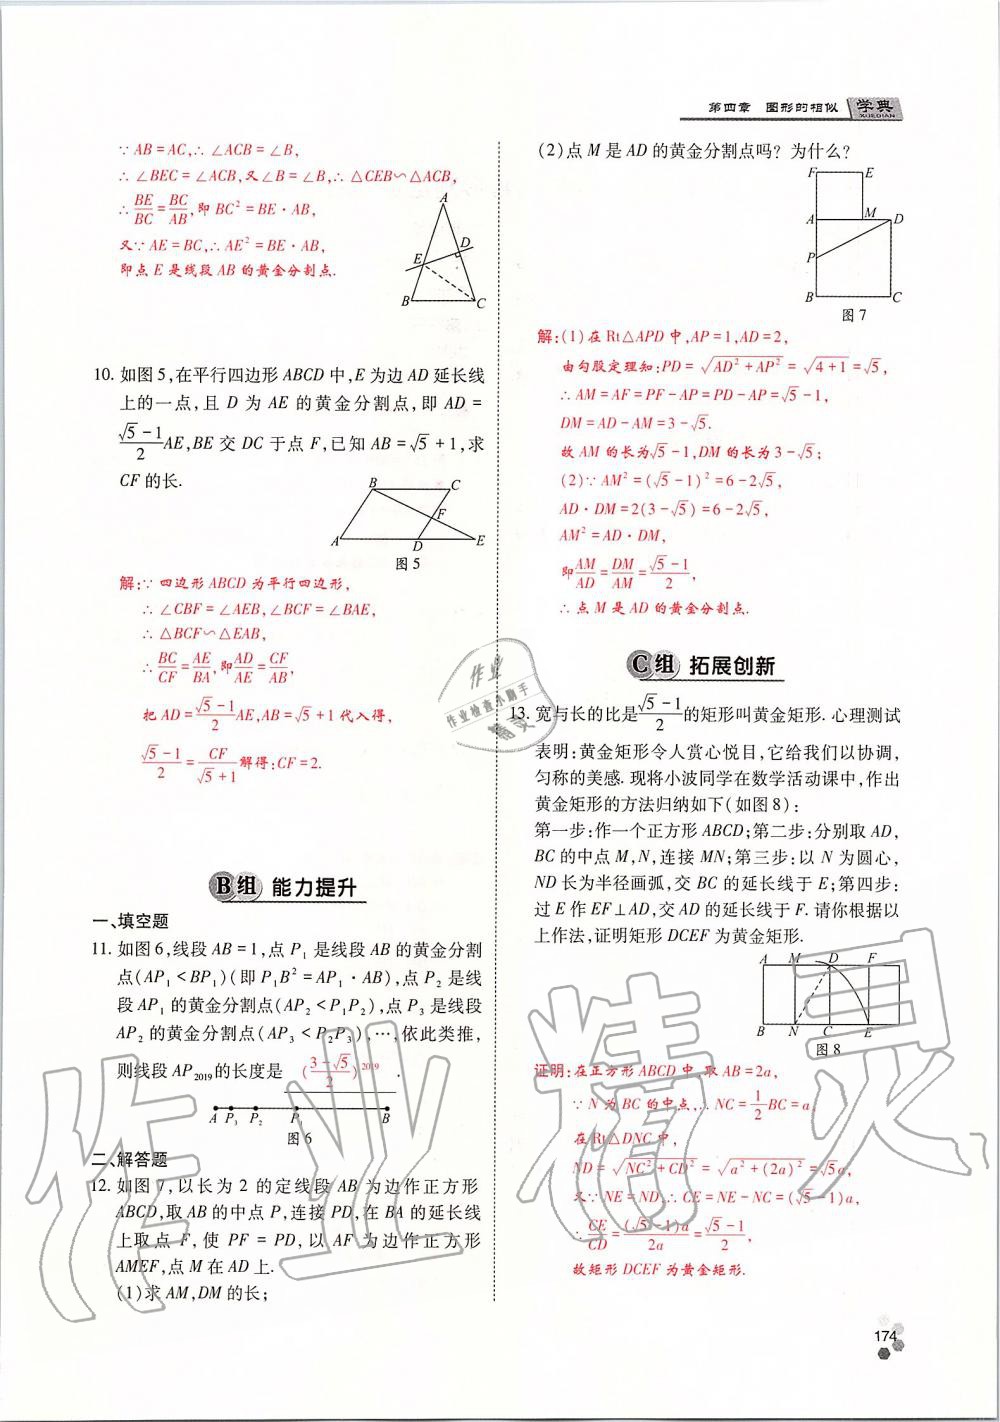 第四章 图形的相似 学典
XUEDIAN
∵AB=AC,∴∠ACB=∠B,
∴∠BEC=∠ACB,又∠B=∠B,∴△CEB∽△ACB,
∴BE/BC=BC/AB,即BC²=BE·AB,
又∵AE=BC,∴AE²=BE·AB,
即点E是线段AB的黄金分割点.
A
D
E
B
C
10. 如图5,在平行四边形ABCD中,E为边AD延长线
上的一点,且D为AE的黄金分割点,即AD=
(√5-1)/2 AE,BE交DC于点F,已知AB=√5+1,求
CF的长.
B C
F
A D E
图5
解:∵四边形ABCD为平行四边形,
∴∠CBF=∠AEB,∠BCF=∠BAE,
∴△BCF∽△EAB,
∴BC/CF=AE/BA,即AD/AE=CF/AB,
把AD=(√5-1)/2 AE,AB=√5+1代入得,
(√5-1)/2=CF/(√5+1)解得:CF=2.
B组 能力提升
一、填空题
11. 如图6,线段AB=1,点P₁是线段AB的黄金分割
点(AP₁<BP₁)(即P₁B²=AP₁·AB),点P₂是线
段AP₁的黄金分割点(AP₂<P₁P₂),点P₃是线段
AP₂的黄金分割点(AP₃<P₂P₃),…,依此类推,
则线段AP₂₀₁₉的长度是 ((3-√5)/2)²⁰¹⁹ .
A P₃ P₂ P₁ B
图6
二、解答题
12. 如图7,以长为2的定线段AB为边作正方形
ABCD,取AB的中点P,连接PD,在BA的延长线
上取点F,使PF=PD,以AF为边作正方形
AMEF,点M在AD上.
(1)求AM,DM的长;
(2)点M是AD的黄金分割点吗?为什么?
F E
A M D
P
B C
图7
解:(1)在Rt△APD中,AP=1,AD=2,
由勾股定理知:PD=√(AD²+AP²)=√(4+1)=√5,
∴AM=AF=PF-AP=PD-AP=√5-1,
DM=AD-AM=3-√5.
故AM的长为√5-1,DM的长为3-√5;
(2)∵AM²=(√5-1)²=6-2√5,
AD·DM=2(3-√5)=6-2√5,
AM²=AD·DM,
即AM/AD=DM/AM=(√5-1)/2,
∴点M是AD的黄金分割点.
C组 拓展创新
13. 宽与长的比是(√5-1)/2的矩形叫黄金矩形.心理测试
表明:黄金矩形令人赏心悦目,它给我们以协调,
匀称的美感.现将小波同学在数学活动课中,作出
黄金矩形的方法归纳如下(如图8):
第一步:作一个正方形ABCD;第二步:分别取AD,
BC的中点M,N,连接MN;第三步:以N为圆心,
ND长为半径画弧,交BC的延长线于E;第四步:
过E作EF⊥AD,交AD的延长线于F.请你根据以
上作法,证明矩形DCEF为黄金矩形.
A M D F
B N C E
图8
证明:在正方形ABCD中,取AB=2a,
∵N为BC的中点,∴NC=1/2 BC=a,
在Rt△DNC中,
ND=√(NC²+CD²)=√(a²+(2a)²)=√5a,
又∵NE=ND,∴CE=NE-NC=(√5-1)a,
∴CE/CD=(√5-1)a/2a=(√5-1)/2,
故矩形DCEF为黄金矩形.
174
作业
作业检查小助手
精灵
作业精灵